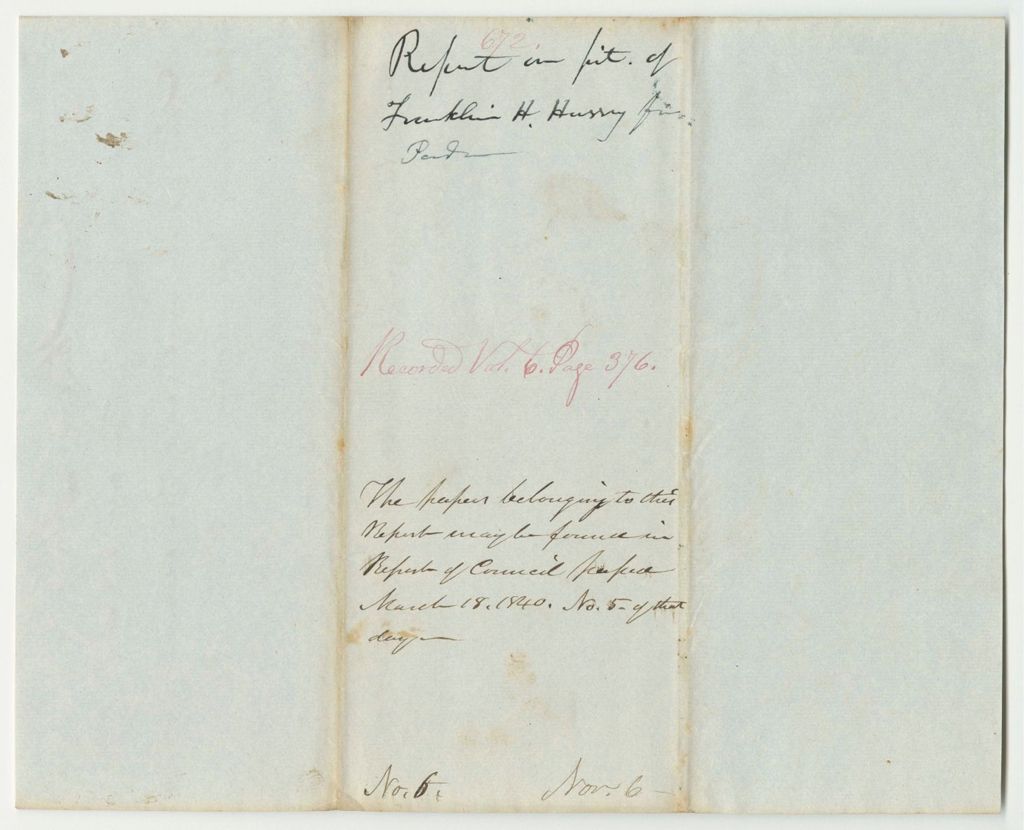 672.
Report on pit. of
Franklin H. Hussey for
Pardon
Recorded Vol. 6. Page 376.
The papers belonging to this
Report may be found in
Report of Council passed
March 18. 1840. No. 5 - of that
day -
No. 6.
Nov. 6 -